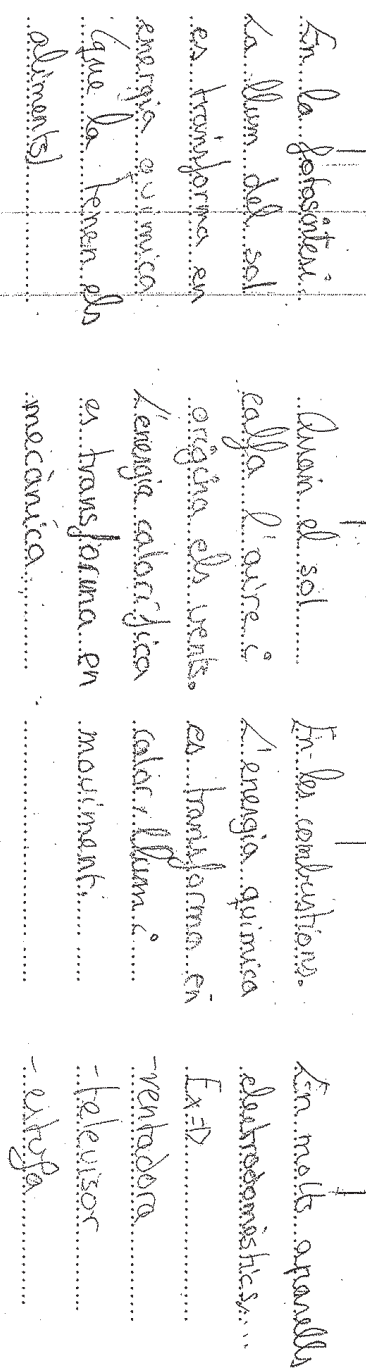 En la fotosíntesi.
La llum del sol
es transforma en
energia química
(que la tenen els
aliments)
Quan el sol
calfa l'aire i
origina els vents.
L'energia calorífica
es transforma en
mecànica.
En les combustions.
L'energia química
es transforma en
calor, llum i
moviment.
En molts aparells
electrodomèstics...
Ex=D
-ventadora
-televisor
-estufa